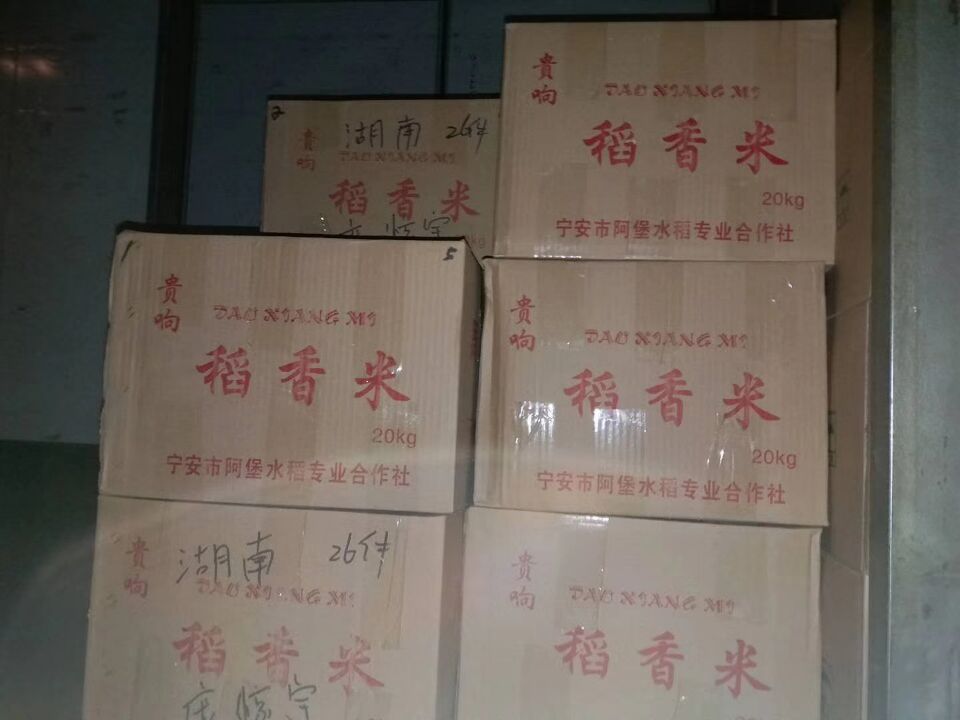 贵响
DAO XIANG MI
稻香米
20kg
宁安市阿堡水稻专业合作社
2
湖南 26件
贵响
DAO XIANG MI
稻香米
kg
5
贵响
DAO XIANG MI
稻香米
20kg
宁安市阿堡水稻专业合作社
贵响
DAO XIANG MI
稻香米
20kg
宁安市阿堡水稻专业合作社
湖南 26件
贵响
DAO XIANG MI
稻香米
贵响
DAO XIANG MI
稻香米